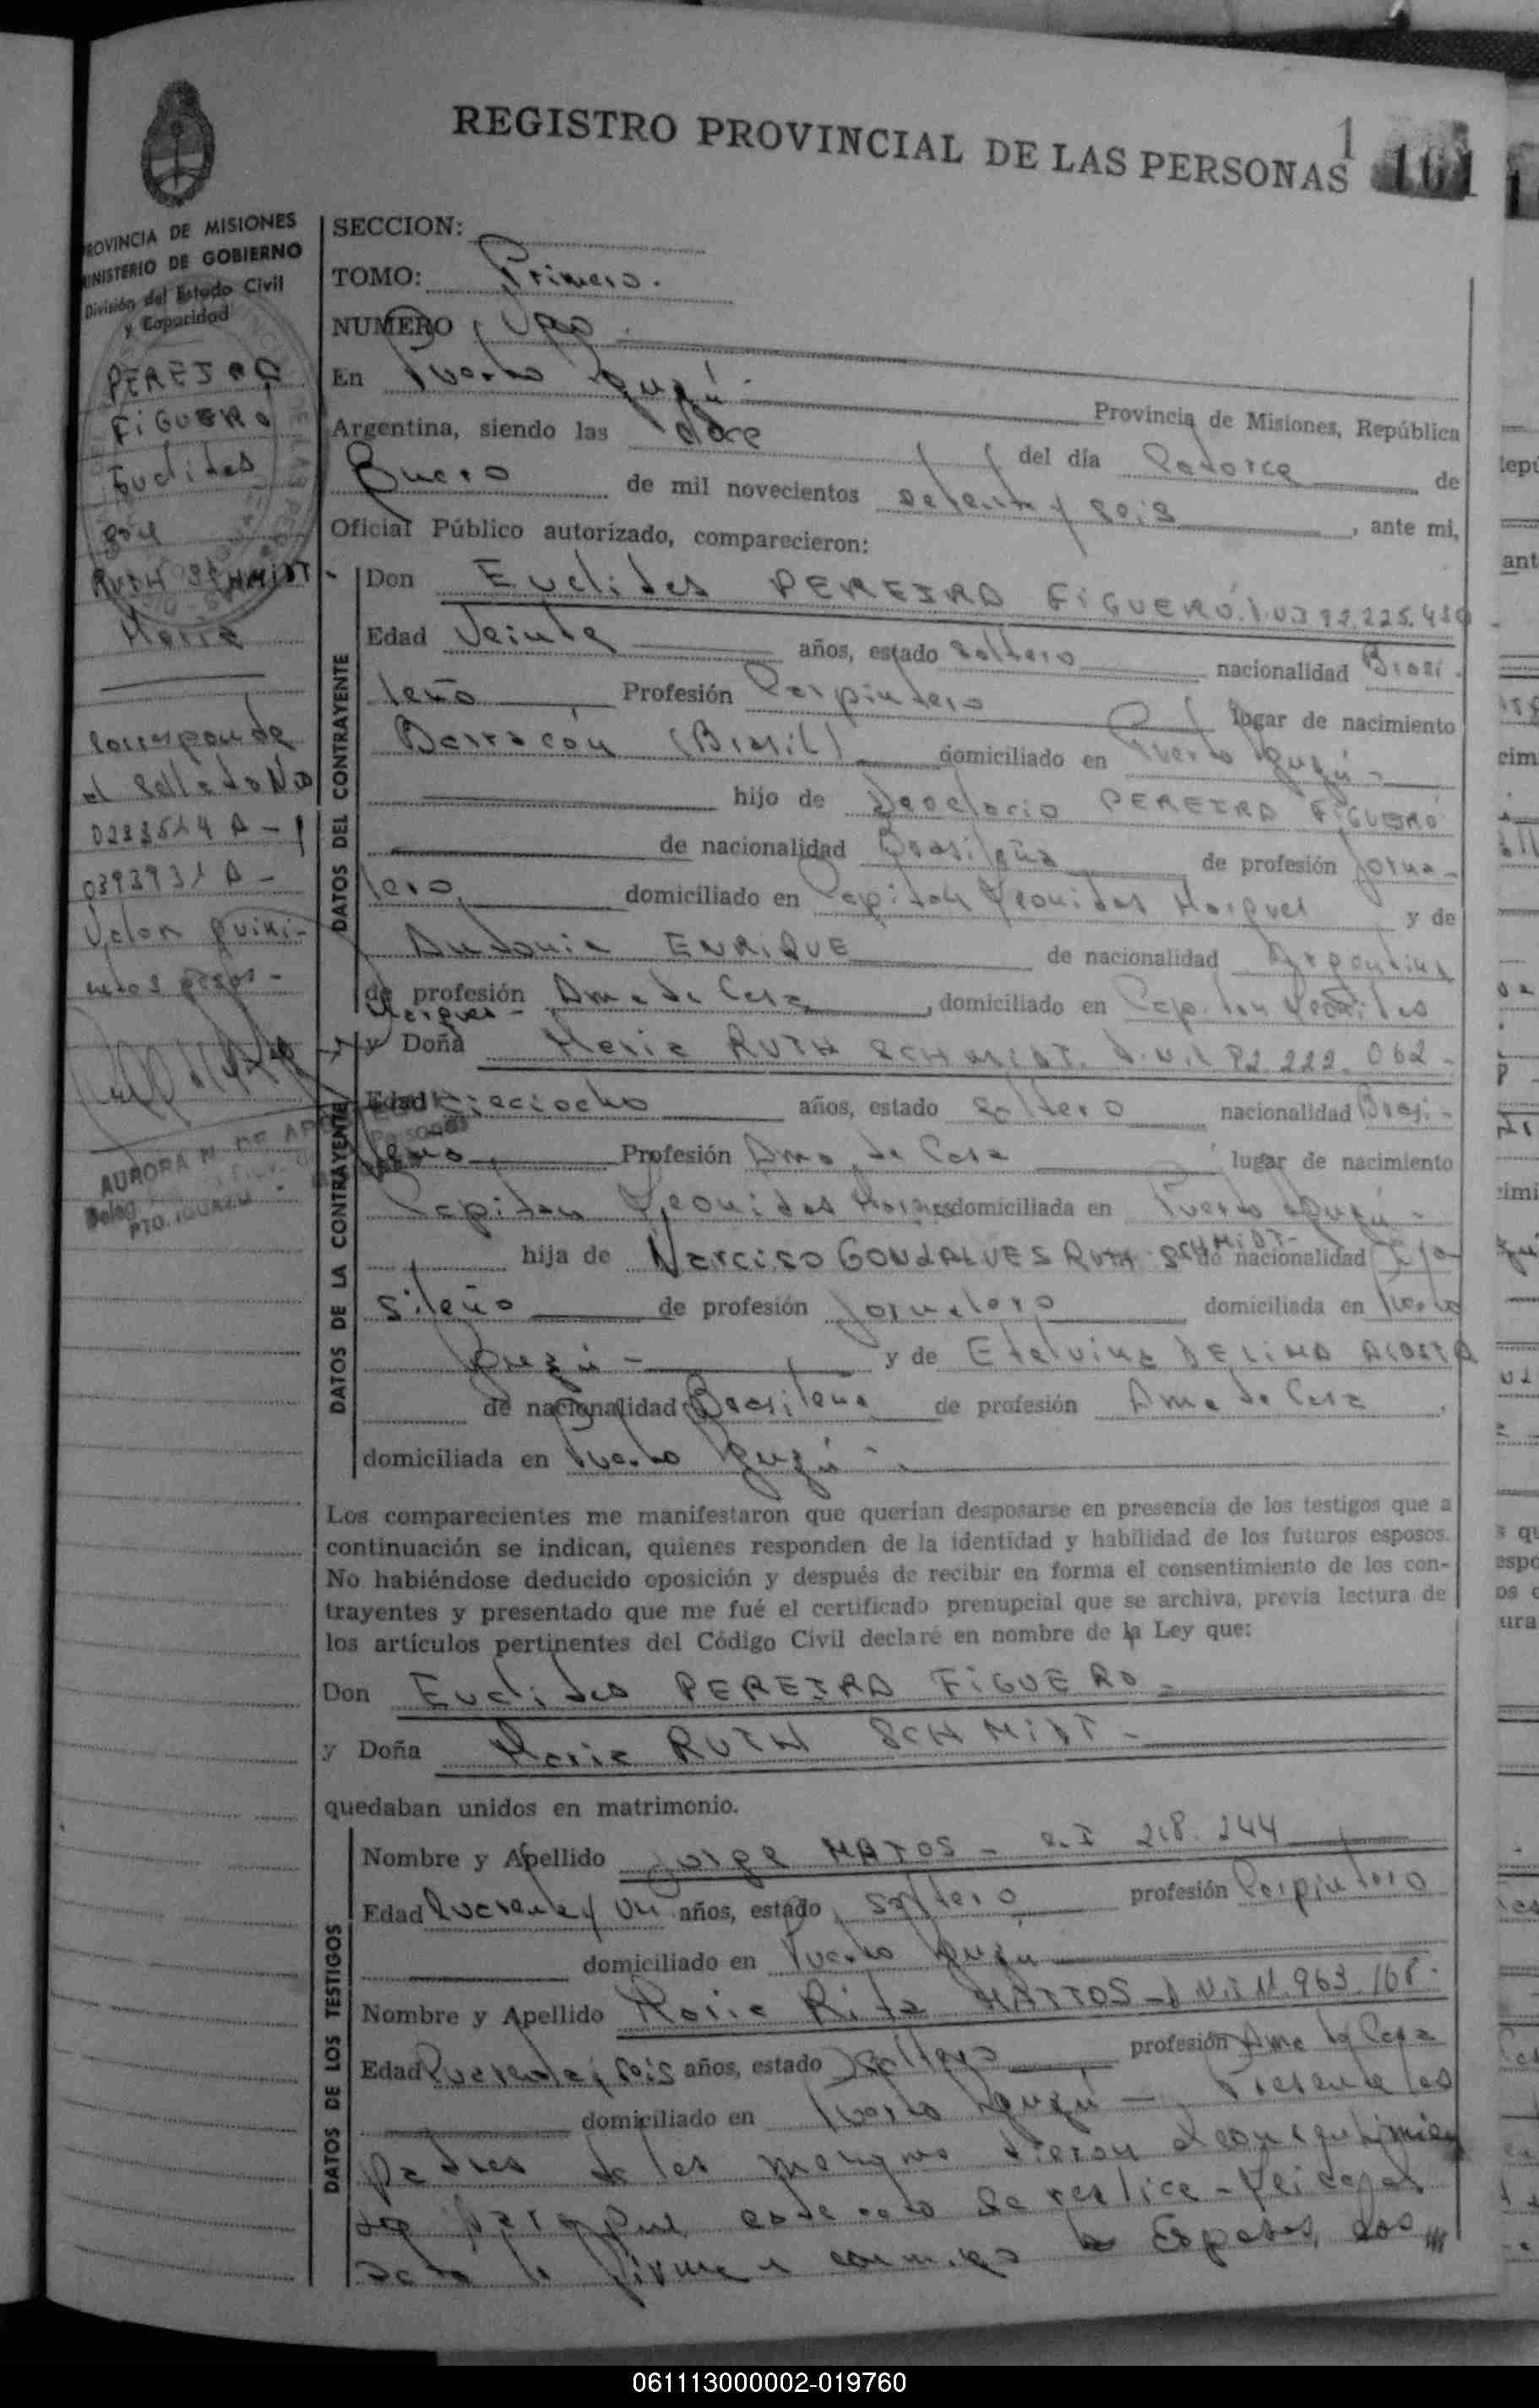 REGISTRO PROVINCIAL DE LAS PERSONAS
1
101
PROVINCIA DE MISIONES
MINISTERIO DE GOBIERNO
División del Estado Civil
y Capacidad
PEREIRA
FIGUERÓ
Euclides
con
RUTH SCHMIDT
Maria
Corresponde
al Sellado No
0283514 A - y
0393931 A -
Valor quini-
entos pesos -
AURORA
PTO. IGUAZU
SECCION:
TOMO: Primero.
NUMERO Uno
En Puerto Iguazú - Provincia de Misiones, República
Argentina, siendo las doce del día Catorce de
Enero de mil novecientos setenta y seis, ante mi,
Oficial Público autorizado, comparecieron:
DATOS DEL CONTRAYENTE
Don Euclides PEREIRA FIGUERÓ. 92.225.480
Edad Veinte años, estado Soltero nacionalidad Brasi-
leño Profesión Carpintero lugar de nacimiento
Barracón (Brasil) domiciliado en Puerto Iguazú -
hijo de Deoclecio PEREIRA FIGUERÓ
de nacionalidad Brasileña de profesión Jorna-
lero domiciliado en Capitan Leonidas Marques y de
Antonia ENRIQUE de nacionalidad Argentina
de profesión Ama de Casa, domiciliado en Capitan Leonidas
Marques -
DATOS DE LA CONTRAYENTE
y Doña Maria RUTH SCHMIDT. D.N.I. 92.222.062 -
Edad Dieciocho años, estado Soltero nacionalidad Brasi-
leño Profesión Ama de Casa lugar de nacimiento
Capitan Leonidas Marques domiciliada en Puerto Iguazú -
hija de Narciso GONZALVES RUTH SCHMIDT - de nacionalidad Bra-
sileño de profesión Jornalero domiciliada en Puerto
Iguazú - y de Etelvina DE LIMA ACOSTA
de nacionalidad Brasileña de profesión Ama de Casa,
domiciliada en Puerto Iguazú -
Los comparecientes me manifestaron que querían desposarse en presencia de los testigos que a
continuación se indican, quienes responden de la identidad y habilidad de los futuros esposos.
No habiéndose deducido oposición y después de recibir en forma el consentimiento de los con-
trayentes y presentado que me fué el certificado prenupcial que se archiva, previa lectura de
los artículos pertinentes del Código Civil declaré en nombre de la Ley que:
Don Euclides PEREIRA FIGUERÓ -
y Doña Maria RUTH SCHMIDT -
quedaban unidos en matrimonio.
DATOS DE LOS TESTIGOS
Nombre y Apellido Jorge MATOS - C.I 218.244
Edad Cuarenta y Un años, estado Soltero profesión Carpintero
domiciliado en Puerto Iguazú
Nombre y Apellido Maria Rita MATTOS - D.N.I 11.963.168 -
Edad Cuarenta y seis años, estado Soltero profesión Ama de Casa
domiciliado en Puerto Iguazú - Presente los
padres de los menores dieron el consentimien
to para que este acto se realice - Leida el
acta la firman conmigo los Esposos, dos
061113000002-019760